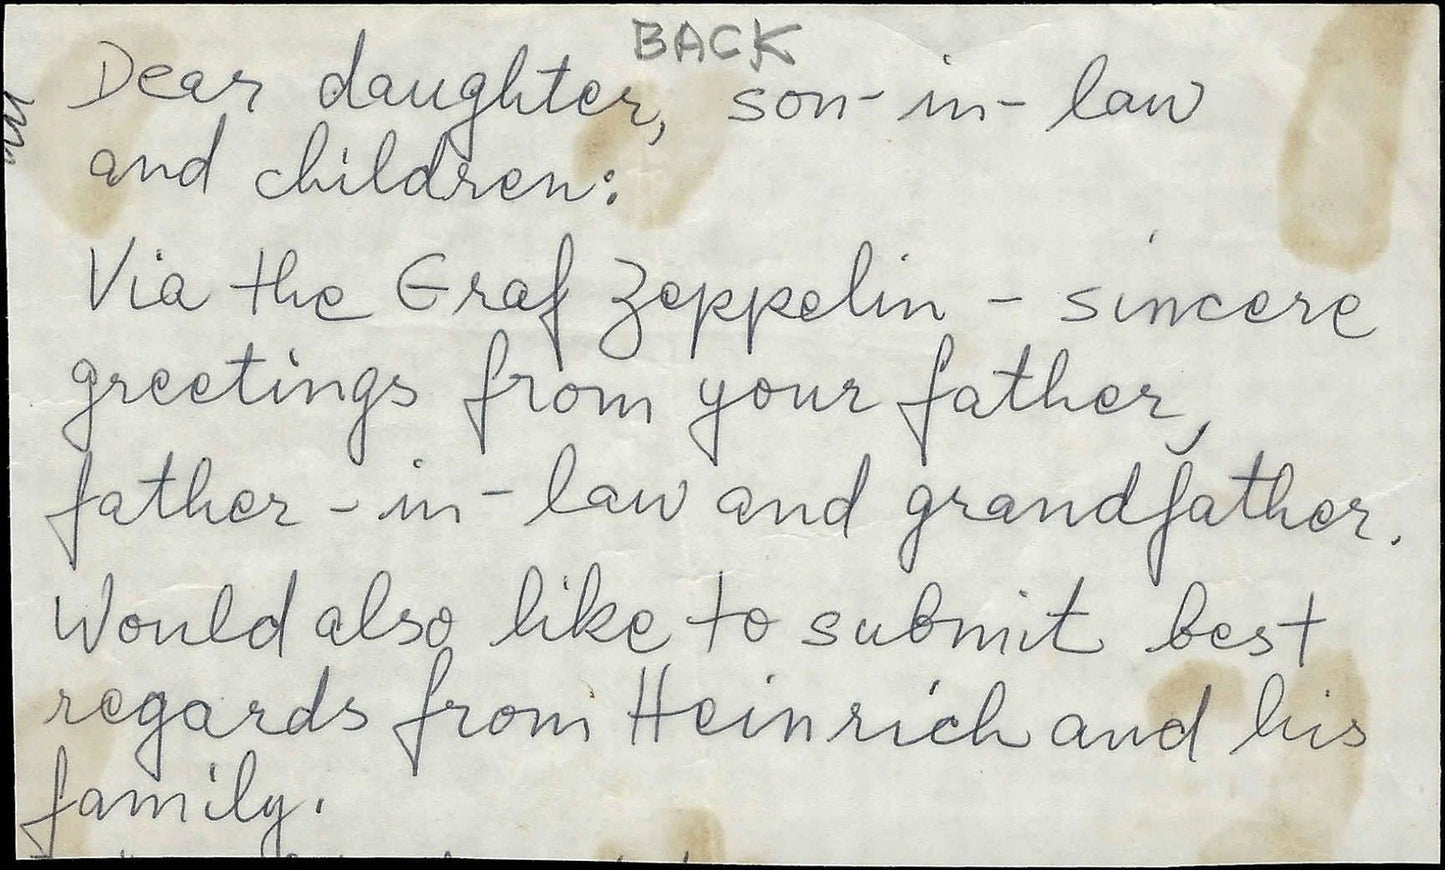 BACK
Dear daughter, son-in-law
and children:
Via the Graf Zeppelin - sincere
greetings from your father,
father-in-law and grandfather.
Would also like to submit best
regards from Heinrich and his
family.